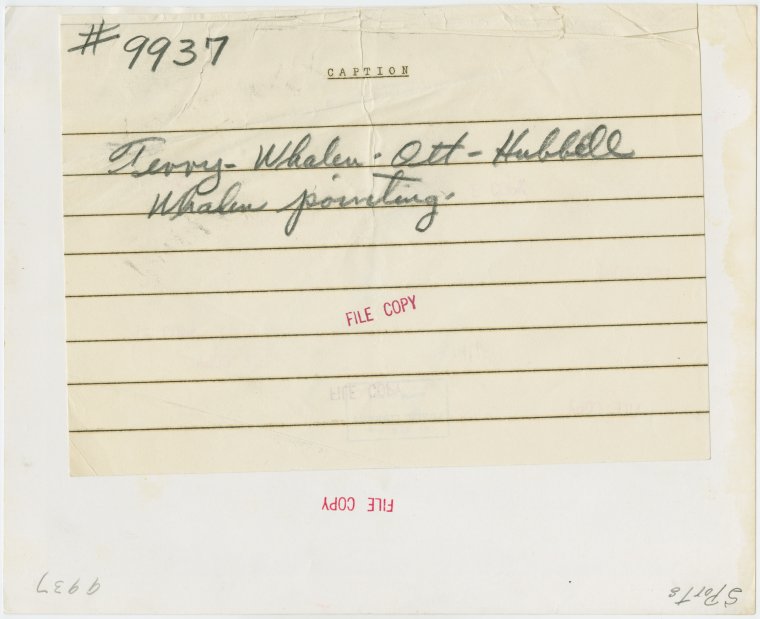 # 9937
CAPTION
Terry - Whalen - Ott - Hubbell
Whalen pointing.
FILE COPY
FILE COPY
FILE COPY
9937
Sports